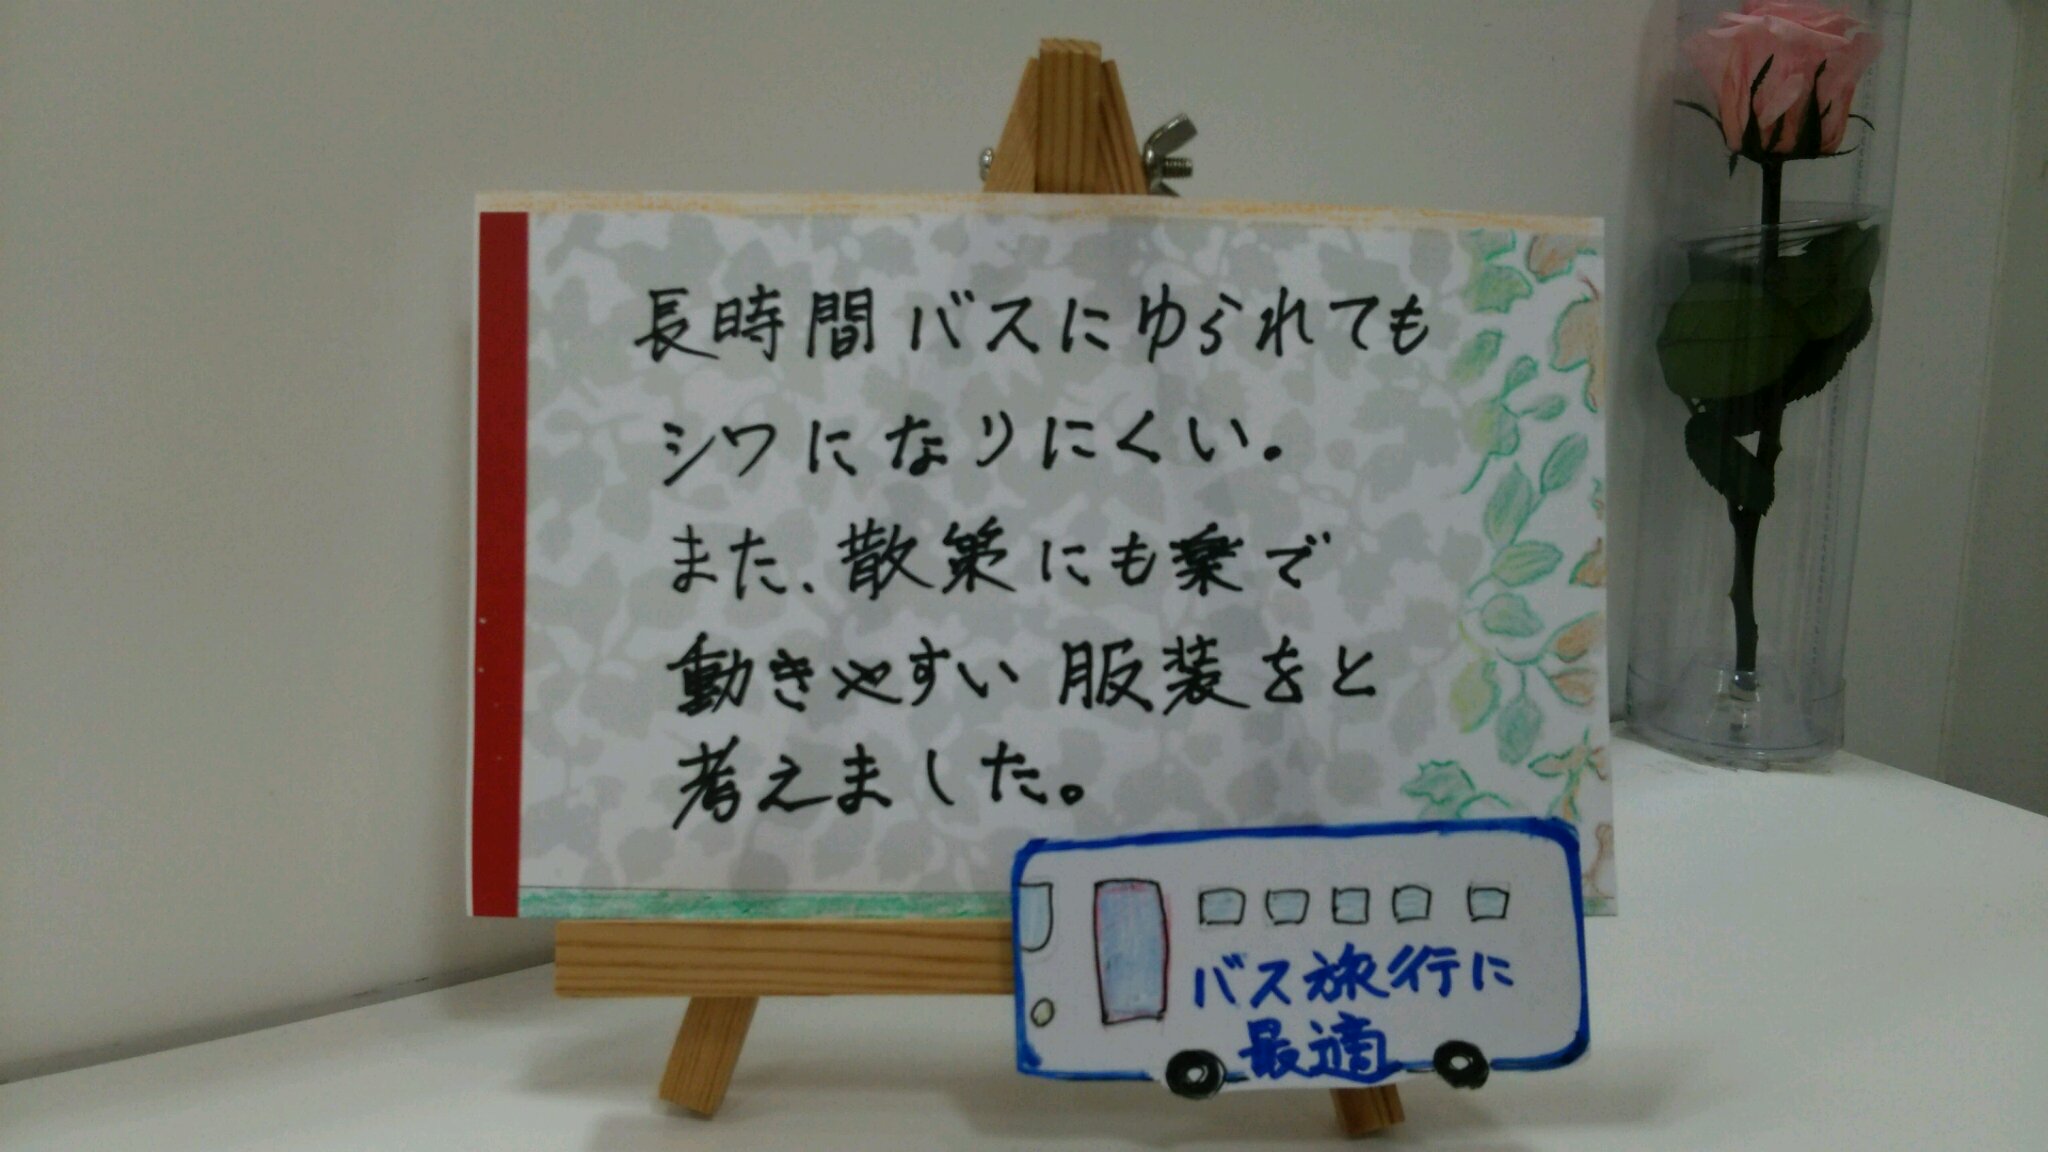 長時間バスにゆられても
シワになりにくい。
また、散策にも楽で
動きやすい服装をと
考えました。
バス旅行に
最適